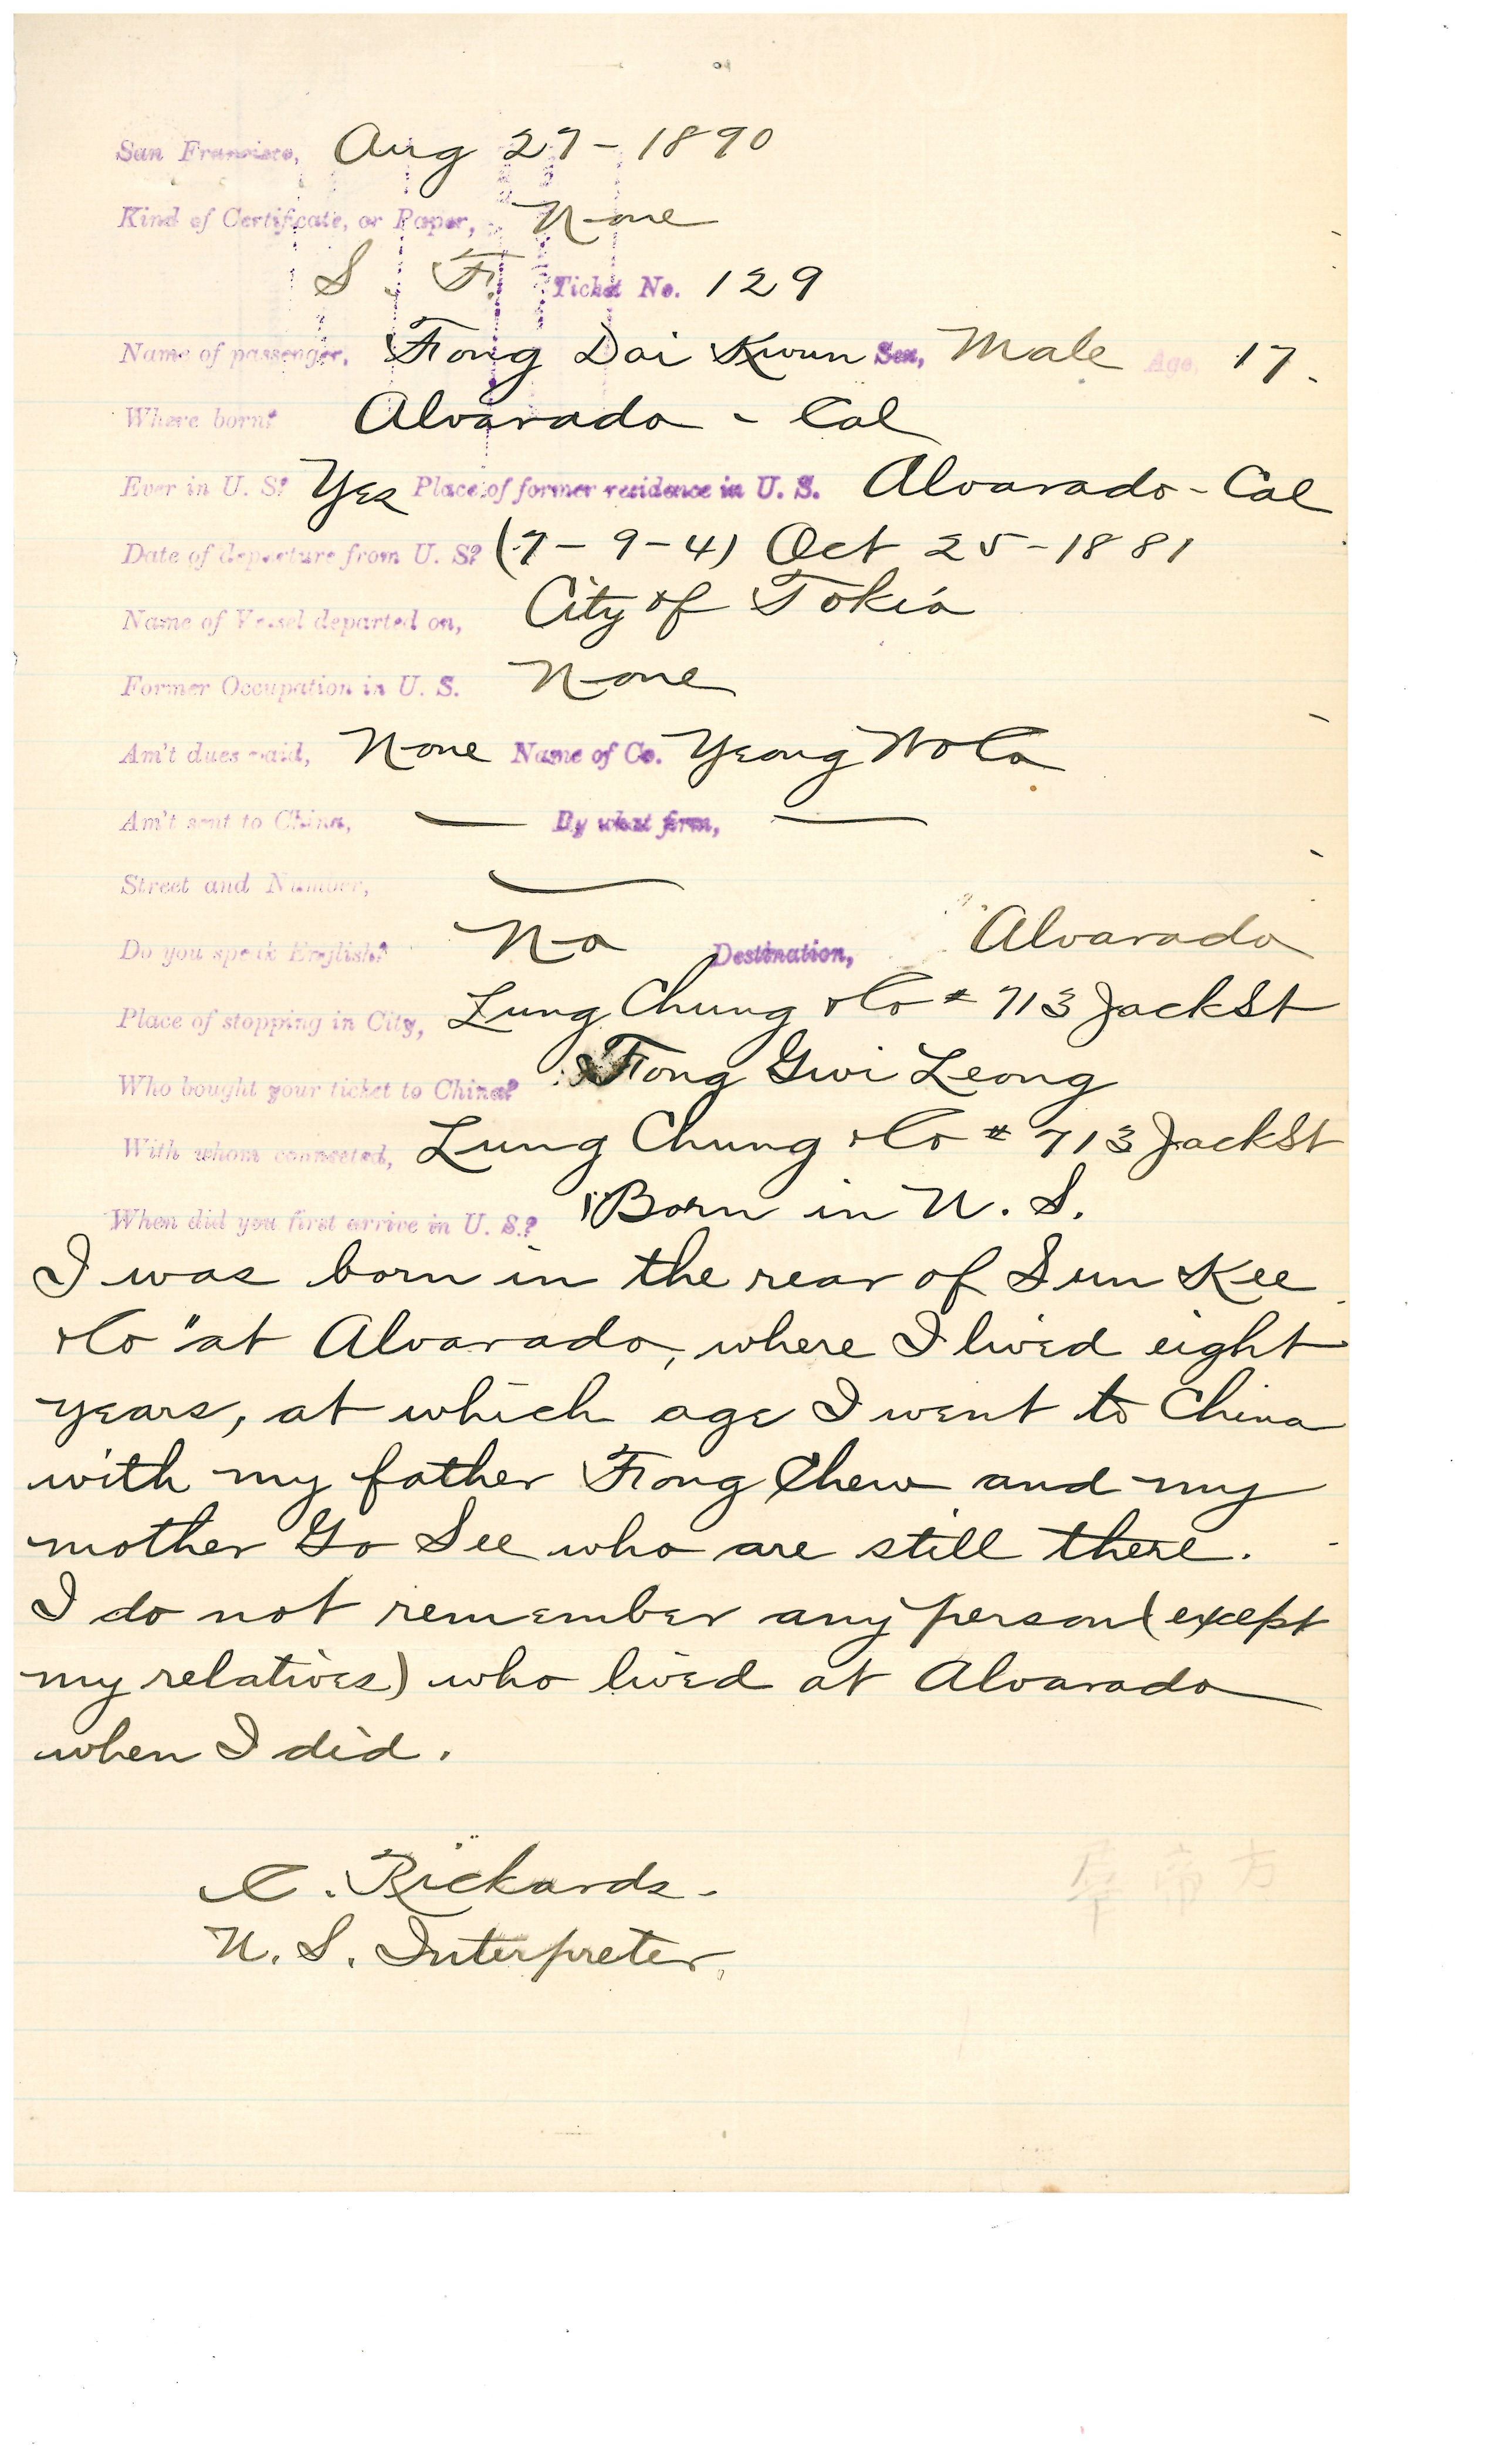 San Francisco, Aug 27 - 1890
Kind of Certificate, or Paper, None
S. F. Ticket No. 129
Name of passenger, Fong Dai Kwun Sex, Male Age, 17.
Where born? Alvarado - Cal
Ever in U. S? Yes Place of former residence in U. S. Alvarado - Cal
Date of departure from U. S? (7-9-4) Oct 25-1881
Name of Vessel departed on, City of Tokio
Former Occupation in U. S. None
Am't dues paid, None Name of Co. Yeong Wo Co
Am't sent to China, — By what firm, —
Street and Number, —
Do you speak English? No Destination, Alvarado
Place of stopping in City, Lung Chung & Co # 713 Jack St
Who bought your ticket to China? Fong Gwi Leong
With whom connected, Lung Chung & Co # 713 Jack St
When did you first arrive in U. S.? Born in U. S.
I was born in the rear of Sun Kee
& Co" at Alvarado, where I lived eight
years, at which age I went to China
with my father Fong Chew and my
mother Go See who are still there.
I do not remember any person (except
my relatives) who lived at Alvarado
when I did.
C. Rickards.
U. S. Interpreter.
方帝